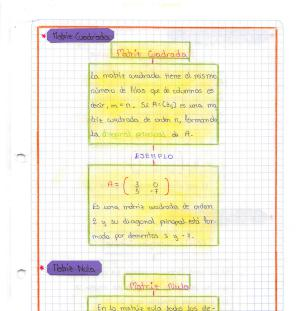 * Matriz Cuadrada
Matriz Cuadrada
La matriz cuadrada tiene el mismo
número de filas que de columnas es
decir, m = n. Si A = (aij) es una ma
triz cuadrada de orden n, formando
la diagonal principal de A.
EJEMPLO
A = ( 3 0
5 -7 )
Es una matriz cuadrada de orden
2 y su diagonal principal está for-
mada por elementos 3 y -7.
* Matriz Nula
Matriz Nula
En la matriz nula todos los ele-